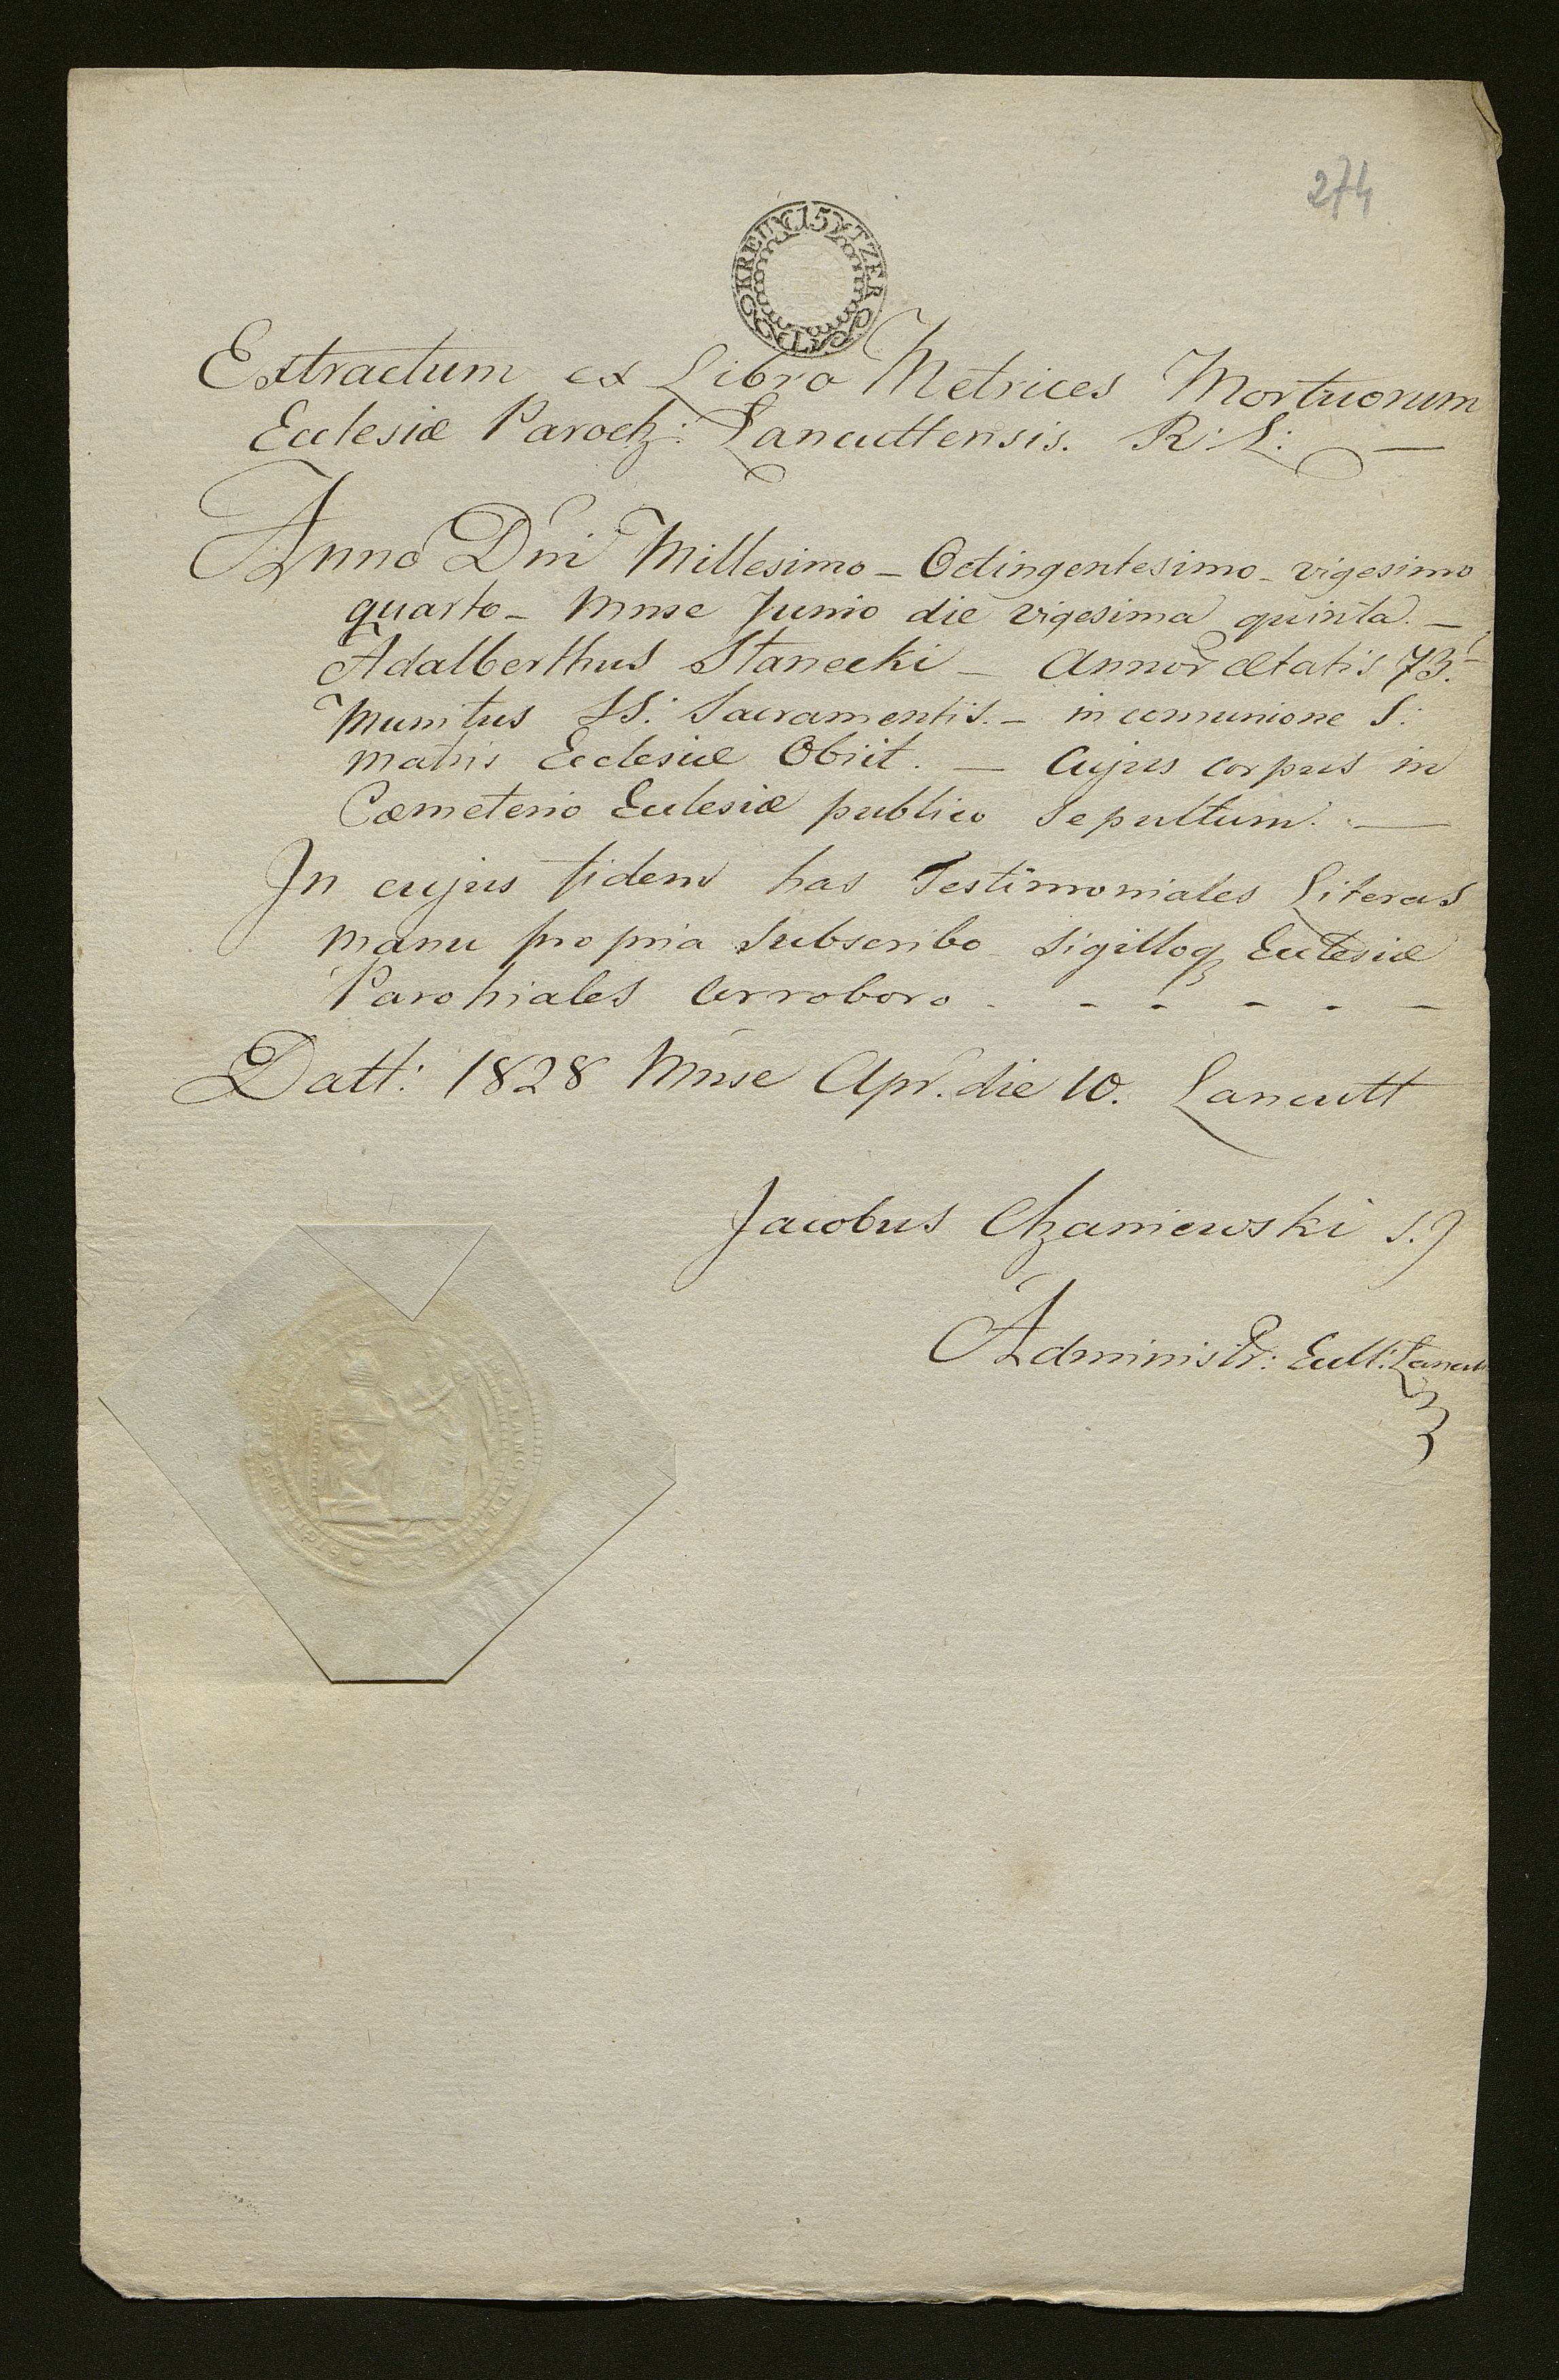 274
15 KREUTZER
Extractum ex Libro Metrices Mortuorum
Ecclesiæ Paroch: Lancuttensis. R: L: —
Anno Dni Millesimo – Octingentesimo – vigesimo
quarto – Mnse Junio die vigesima quinta. –
Adalberthus Stanecki – Annor ætatis 73.
Munitus SS: Sacramentis. – in comunione S:
Matris Ecclesiæ Obiit. — Cujus corpus in
Cæmeterio Ecclesiæ publico Sepultum. —
In cujus fidem has Testimoniales Literas
manu propria Subscribo Sigilloq Ecclesiæ
Parohiales Corroboro - - - - - -
Datt: 1828 Mnse Apr. die 10. Lancutt
Jacobus Chaniewski
Administr: Eccll: Lancutt